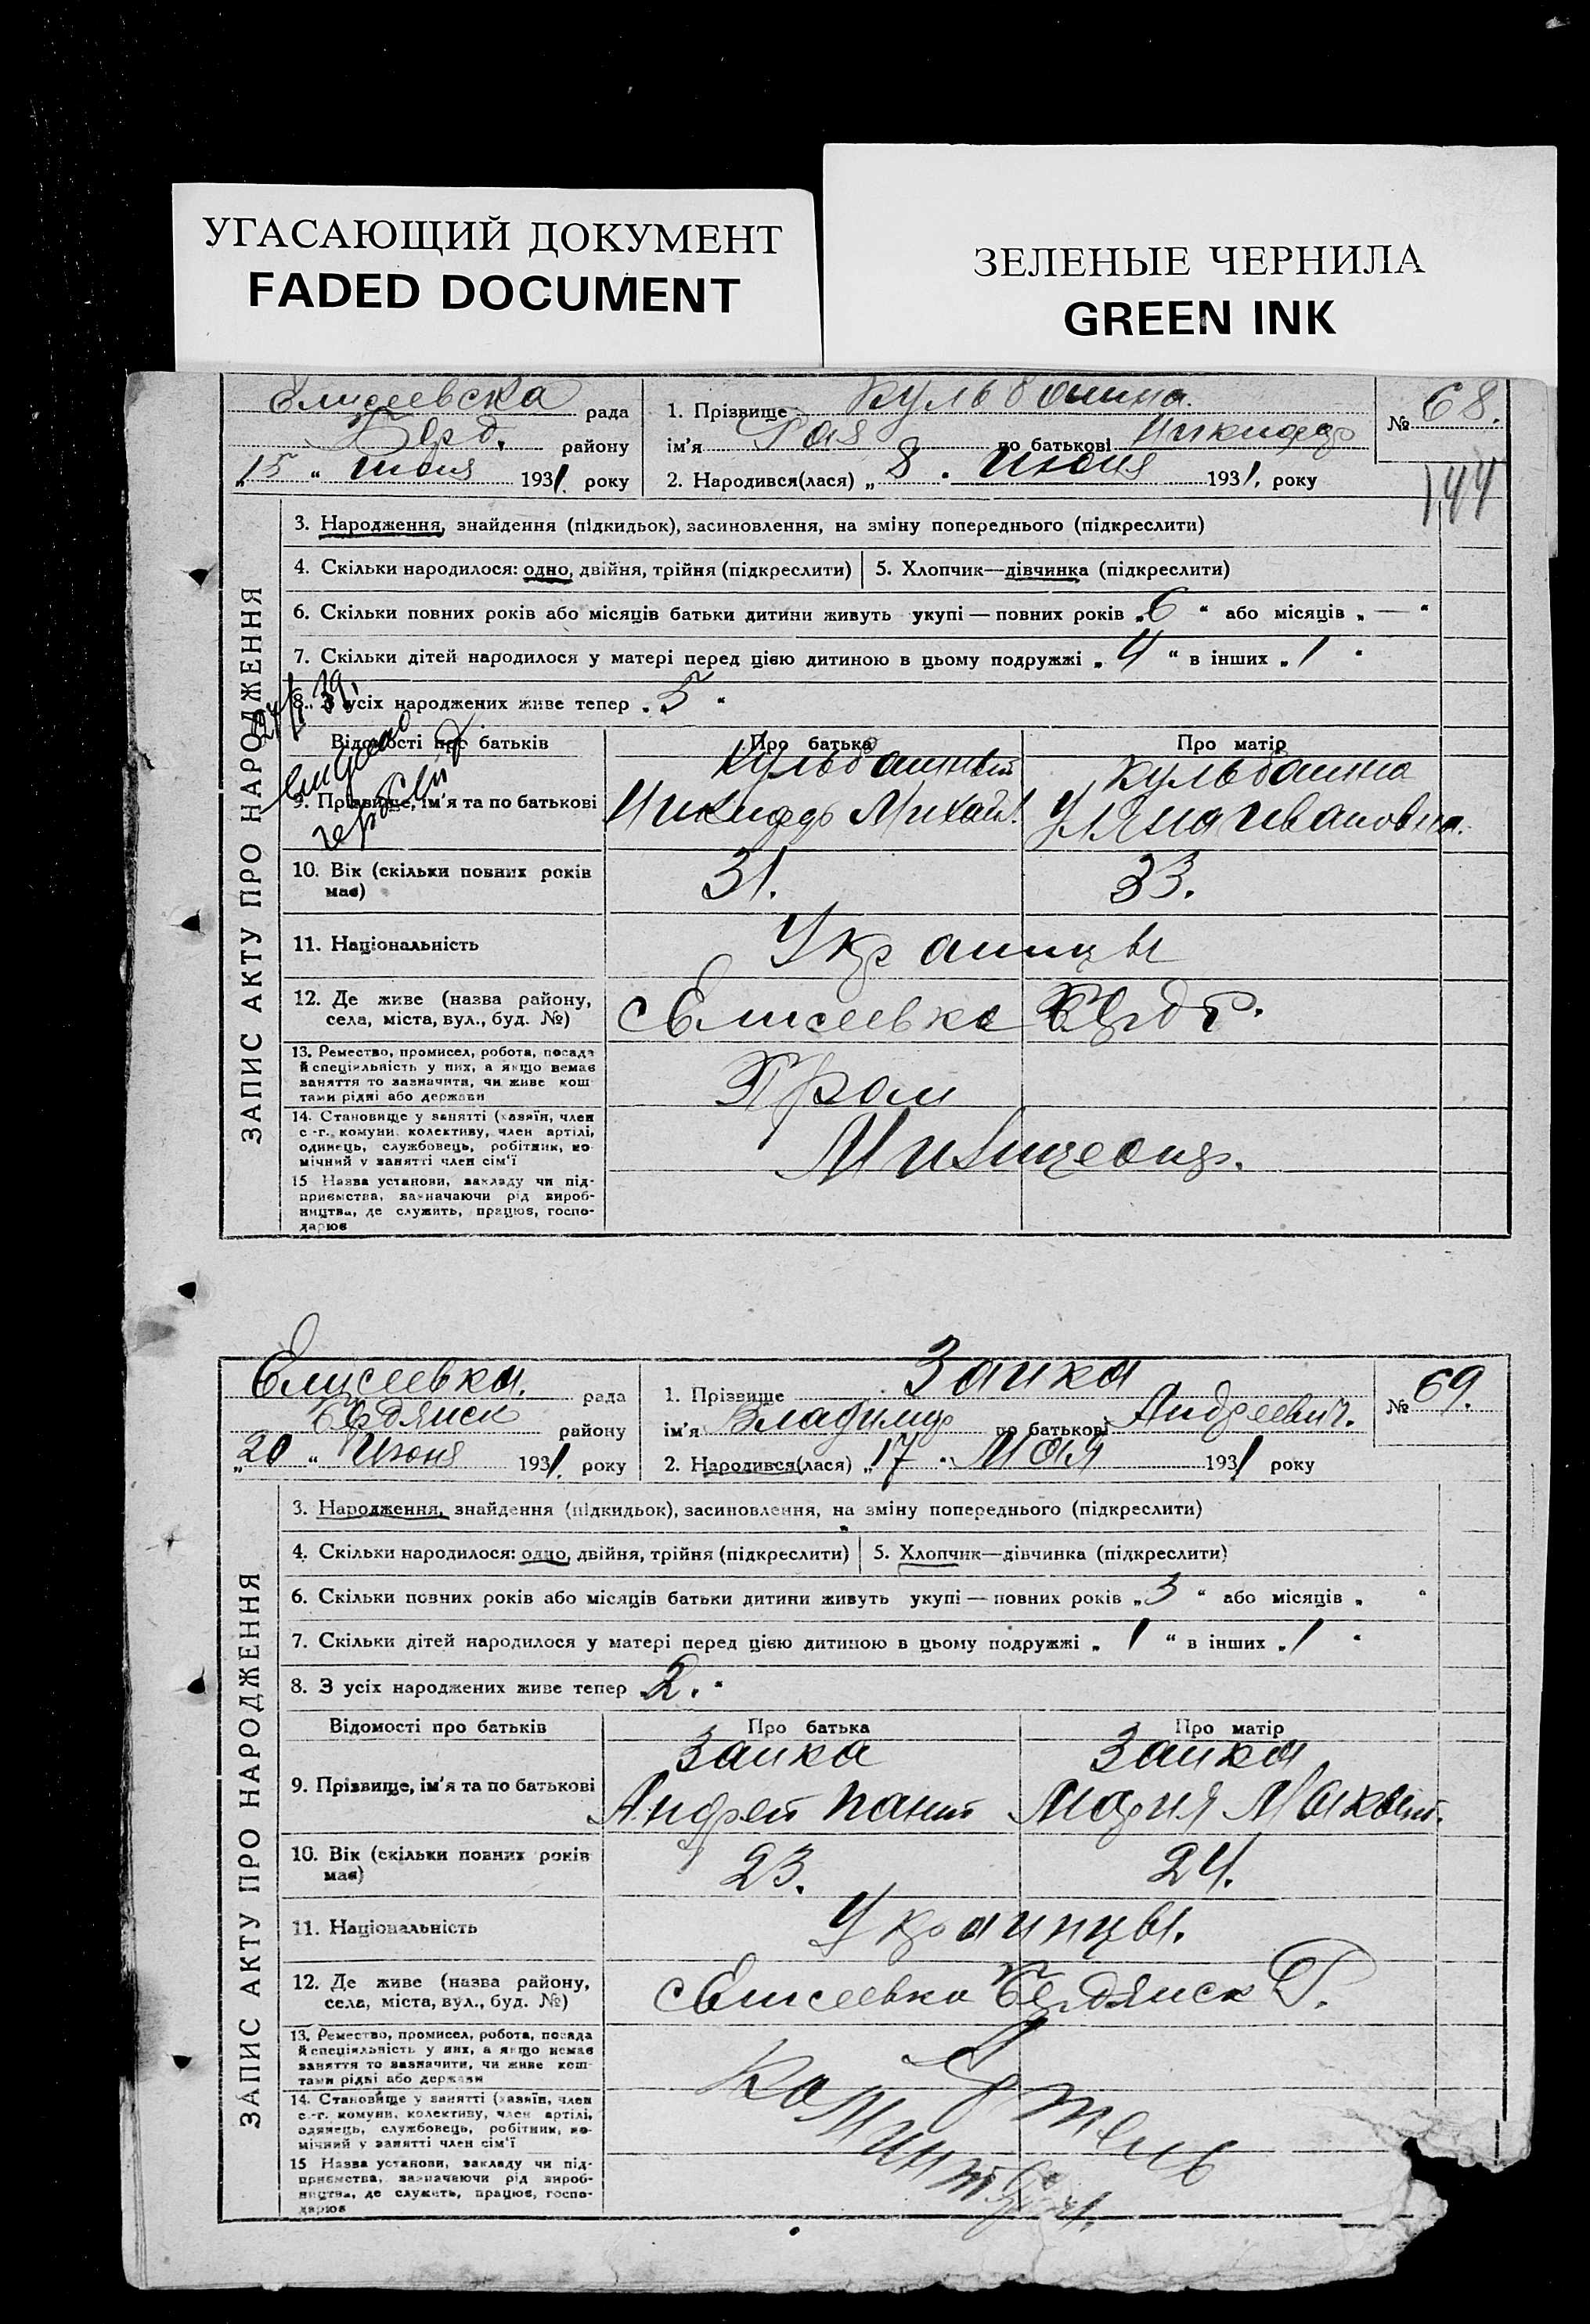 УГАСАЮЩИЙ ДОКУМЕНТ
FADED DOCUMENT
ЗЕЛЕНЫЕ ЧЕРНИЛА
GREEN INK
Елисеевска рада
Берд. району
„15" июня 1931. року
1. Прізвище Кульбашна.
ім'я Рая по батькові Никифор
2. Народився(лася) „8. июня 1931. року
№ 68.
144
ЗАПИС АКТУ ПРО НАРОДЖЕННЯ
3. Народження, знайдення (підкидьок), засиновлення, на зміну попереднього (підкреслити)
4. Скільки народилося: одно, двійня, трійня (підкреслити)
5. Хлопчик—дівчинка (підкреслити)
6. Скільки повних років або місяців батьки дитини живуть укупі — повних років „6" або місяців „—"
7. Скільки дітей народилося у матері перед цією дитиною в цьому подружжі „4" в інших „1"
8. З усіх народжених живе тепер „5"
Відомості про батьків
Про батька
Про матір
9. Прізвище, ім'я та по батькові
Кульбашный
Никифор Михайл.
Кульбашна
Уляна Ивановна.
10. Вік (скільки повних років має)
31.
33.
11. Національність
Украинцы
12. Де живе (назва району, села, міста, вул., буд. №)
с Елисеевка Берд Р.
13. Ремество, промисел, робота, посада
й спеціяльність у них, а якщо немає
заняття то зазначити, чи живе кош
тами рідні або держави
14. Становище у занятті (хазяїн, член
с.-г. комуни, колективу, член артілі,
одинець, службовець, робітник, по
мічний у занятті член сім'ї
15 Назва установи, закладу чи під-
приємства, зазначаючи рід вироб-
ництва, де служить, працює, госпо-
дарює
Милиционер.
Елисеевка. рада
Бердянск району
„20" Июня 1931. року
1. Прізвище Заика
ім'я Владимир по батькові Андреевич.
2. Народився(лася) „17. Мая 1931 року
№ 69.
ЗАПИС АКТУ ПРО НАРОДЖЕННЯ
3. Народження, знайдення (підкидьок), засиновлення, на зміну попереднього (підкреслити)
4. Скільки народилося: одно, двійня, трійня (підкреслити)
5. Хлопчик—дівчинка (підкреслити)
6. Скільки повних років або місяців батьки дитини живуть укупі — повних років „3" або місяців „ "
7. Скільки дітей народилося у матері перед цією дитиною в цьому подружжі „1" в інших „1"
8. З усіх народжених живе тепер „2."
Відомості про батьків
Про батька
Про матір
9. Прізвище, ім'я та по батькові
Заика
Андрей
Заика
Мария
10. Вік (скільки повних років має)
23.
24.
11. Національність
Украинцы.
12. Де живе (назва району, села, міста, вул., буд. №)
с Елисеевка Бердянск Р.
13. Ремество, промисел, робота, посада
й спеціяльність у них, а якщо немає
заняття то зазначити, чи живе кош-
тами рідні або держави
14. Становище у занятті (хазяїн, член
с.-г. комуни, колективу, член артілі,
одинець, службовець, робітник, по-
мічний у занятті член сім'ї
15 Назва установи, закладу чи під-
приємства, зазначаючи рід вироб-
ництва, де служить, працює, госпо-
дарює